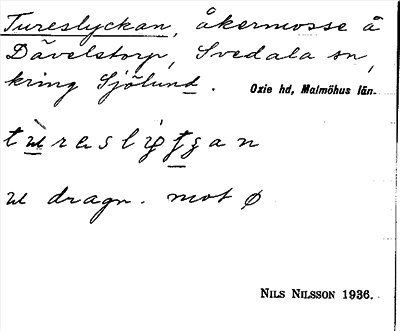 Tureslyckan, åkermosse å
Dävelstorp, Svedala sn,
kring Sjölund. Oxie hd, Malmöhus län.
ʉ dragn. mot ø
NILS NILSSON 1936.